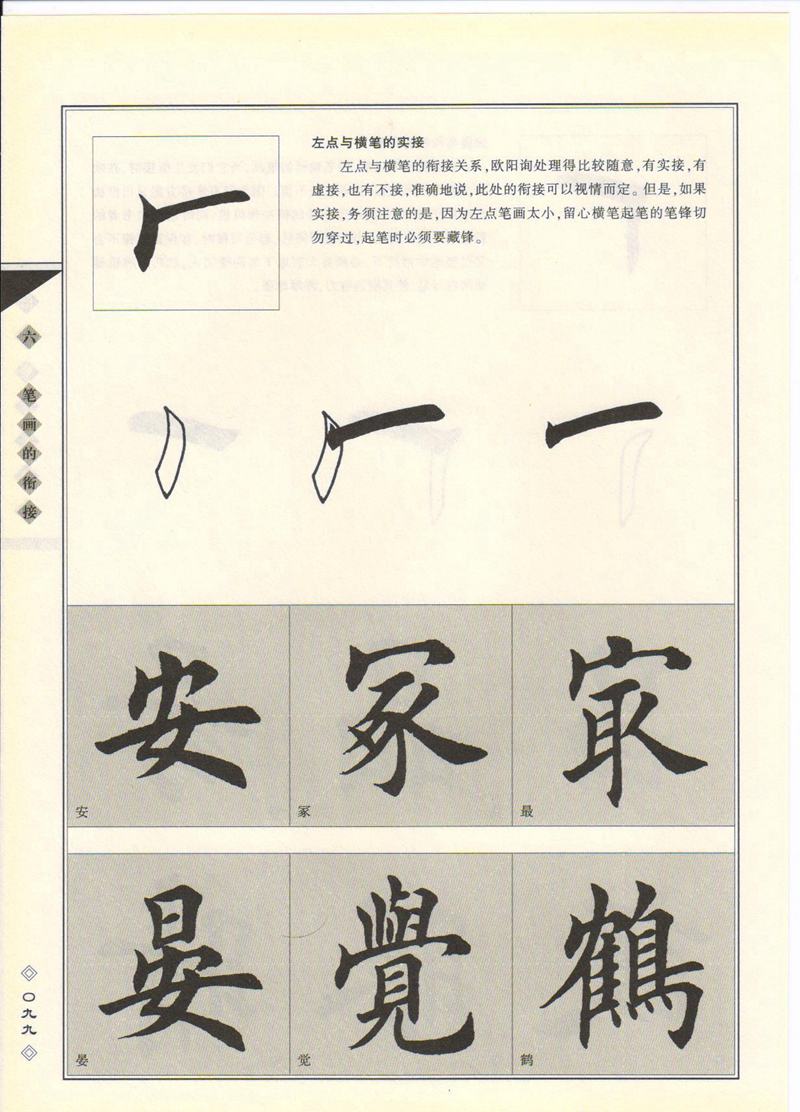 左点与横笔的实接
左点与横笔的衔接关系,欧阳询处理得比较随意,有实接,有
虚接,也有不接,准确地说,此处的衔接可以视情而定。但是,如果
实接,务须注意的是,因为左点笔画太小,留心横笔起笔的笔锋切
勿穿过,起笔时必须要藏锋。
六 笔画的衔接
安 冢 㝡
安 冢 最
晏 覺 鶴
晏 觉 鹤
〇九九